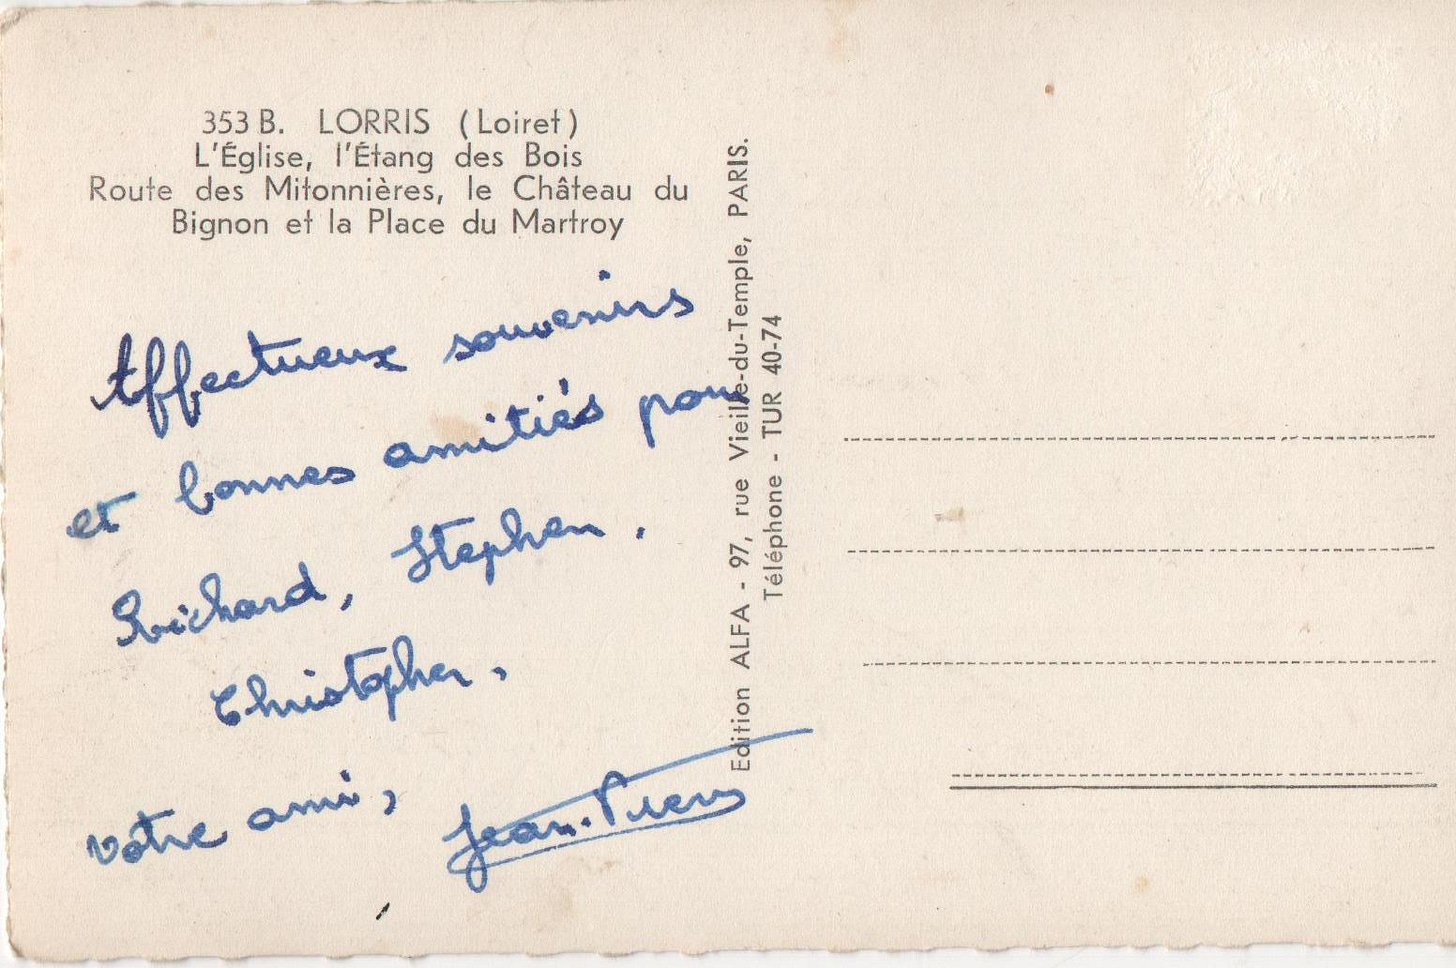 353 B. LORRIS (Loiret)
L'Église, l'Étang des Bois
Route des Mitonnières, le Château du
Bignon et la Place du Martroy
Affectueux souvenirs
et bonnes amitiés pour
Richard, Stephen,
Christopher,
votre ami,
Jean-Pierre
Edition ALFA - 97, rue Vieille-du-Temple, PARIS.
Téléphone - TUR 40-74